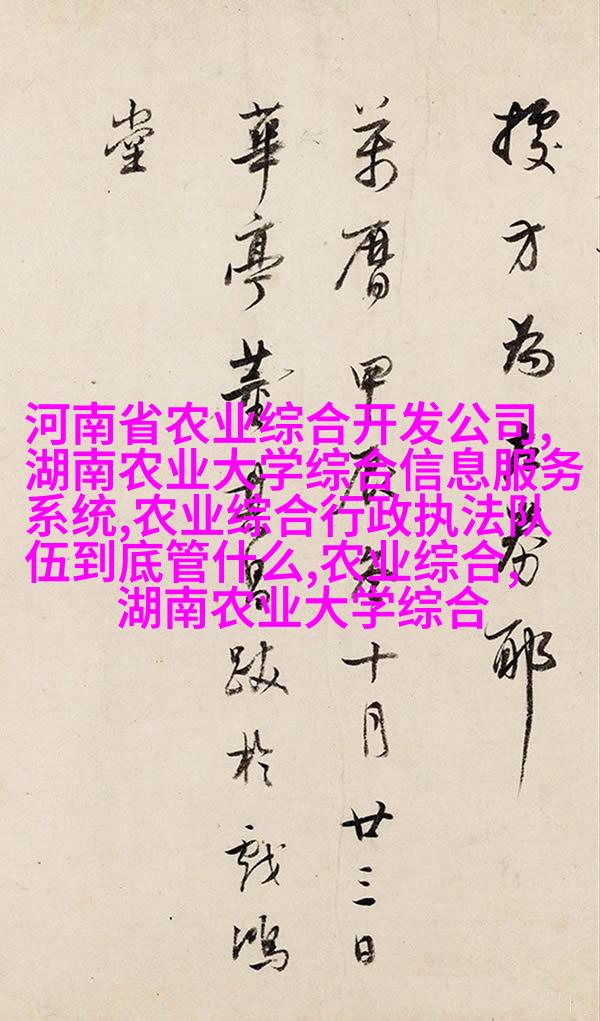 方為耶
萬曆甲辰十月廿三日
華亭董其昌跋於戲鴻
堂
河南省农业综合开发公司,
湖南农业大学综合信息服务
系统,农业综合行政执法队
伍到底管什么,农业综合,
湖南农业大学综合